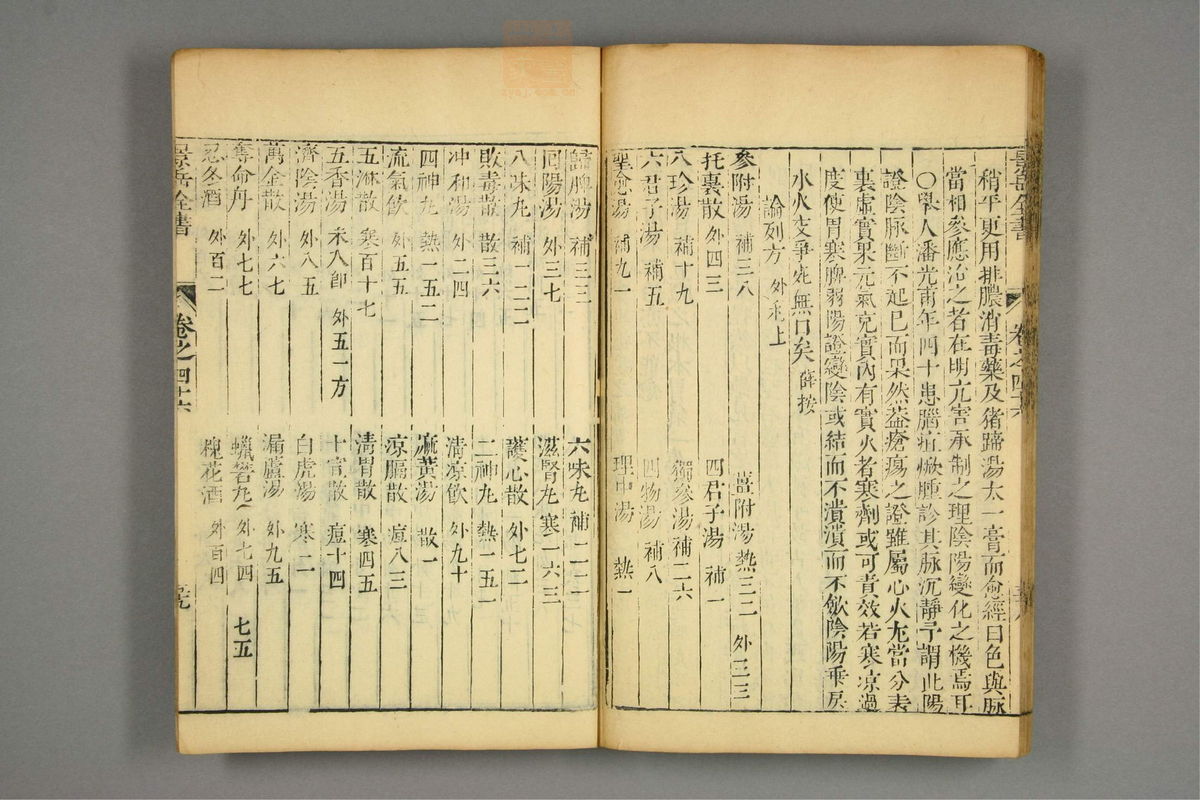 稍平更用排膿消毒藥及猪蹄湯太一膏而愈經曰色與脉
當相參應治之者在明亢害承制之理陰陽變化之機焉耳
○舉人潘光甫年四十患腦疽焮腫診其脉沉靜予謂此陽
證陰脉斷不起已而果然蓋瘡瘍之證雖屬心火尤當分表
裏虛實果元氣充實內有實火者寒劑或可責效若寒凉過
度使胃寒脾弱陽證變陰或結而不潰潰而不斂陰陽乖戾
水火交爭死無日矣 薛按
論列方 外科上
參附湯 補三八 薑附湯 熱三二 外三三
托裏散 外四三 四君子湯 補一
八珍湯 補十九 獨參湯 補二六
六君子湯 補五 四物湯 補八
聖愈湯 補九一 理中湯 熱一
歸脾湯 補三三 六味丸 補二二
回陽湯 外三七 滋腎丸 寒一六三
八味丸 補一二二 護心散 外七二
敗毒散 散三六 二神丸 熱一五一
冲和湯 外二四 清凉飲 外九十
四神丸 熱一五二 麻黃湯 散一
流氣飲 外五五 凉膈散 痘八三
五淋散 寒百十七 清胃散 寒四五
五香湯 未入卽 外五一方 十宣散 痘十四
濟陰湯 外八五 白虎湯 寒二
萬金散 外六七 漏蘆湯 外九五
奪命丹 外七七 蠟礬丸 外七四 七五
忍冬酒 外百二 槐花酒 外百四
景岳全書 卷之四十六